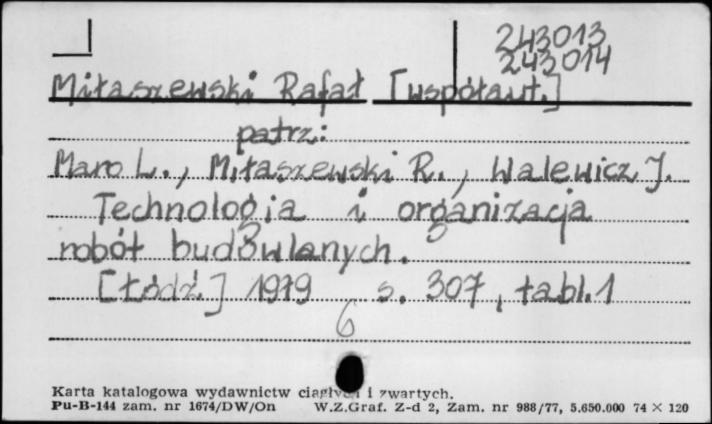 243013
243014
Miłaszewski Rafał [współaut.]
patrz:
Maro L., Miłaszewski R., Walewicz J.
Technologia i organizacja
robót budowlanych.
[Łódź] 1979 s. 307, tabl. 1
6
Karta katalogowa wydawnictw ciągłych i zwartych.
Pu-B-144 zam. nr 1674/DW/On W.Z.Graf. Z-d 2, Zam. nr 988/77, 5.650.000 74 × 120